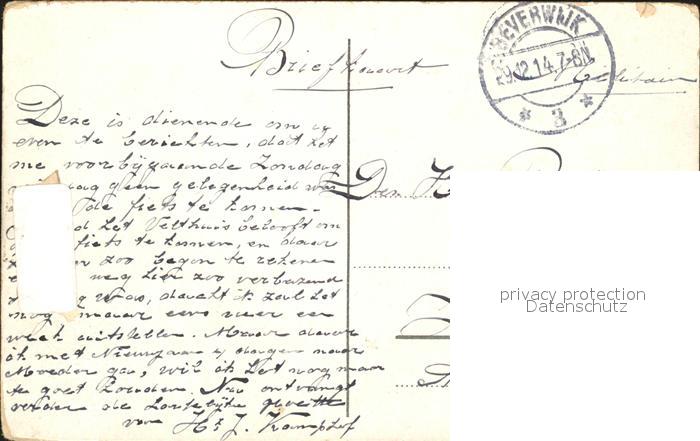 Briefkaart
BEVERWIJK
29.12.14.7-8N
* 3 *
Militair
Deze is dienende om u
even te berichten, dat het
me voorbijgaande Zondag
geen gelegenheid was
de fiets te komen.
het Velthuis beloofd om
fiets te komen, en daar
zoo begon te rekenen
weg hier zoo verbazend
was, dacht ik zal het
nog maar eens weer een
week uitstellen. Maar daar
ik met Nieuwjaar 4 dagen naar
Moeder ga, wil ik het nog maar
te goet houden. Nu ontvangt
verder de hartelijke groeten
van Hr. J. Kamphof
Den H
privacy protection
Datenschutz